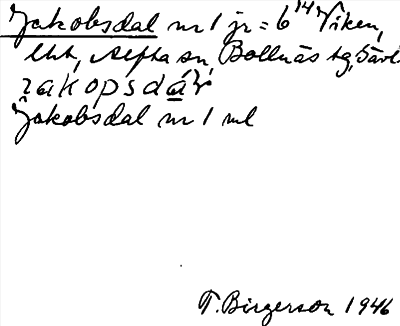 Jakobsdal nr 1 jr = 6¹⁴ Viken,
lht, Alfta sn, Bollnäs tg, Gävl.
jakopsdár
Jakobsdal nr 1 ml
T. Birgerson 1946